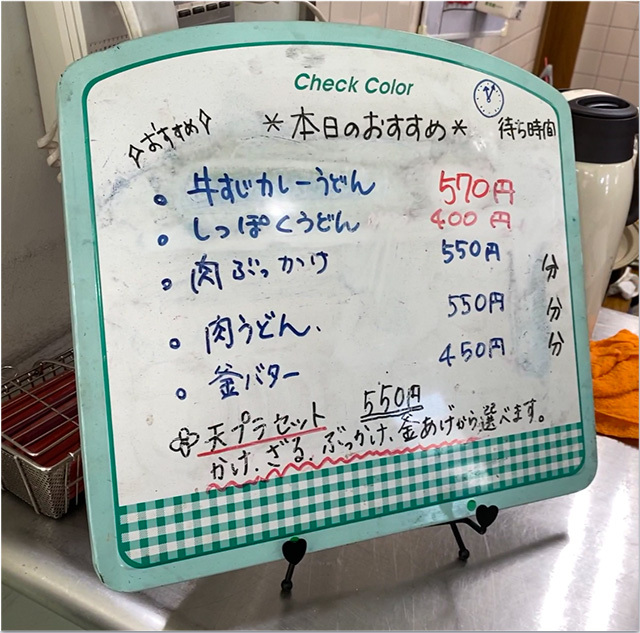 Check Color
おすすめ *本日のおすすめ* 待ち時間
• 牛すじカレーうどん 570円
• しっぽくうどん 400円
• 肉ぶっかけ 550円 分
• 肉うどん. 550円 分
• 釜バター 450円 分
天プラセット 550円
かけ、ざる、ぶっかけ、釜あげから選べます。